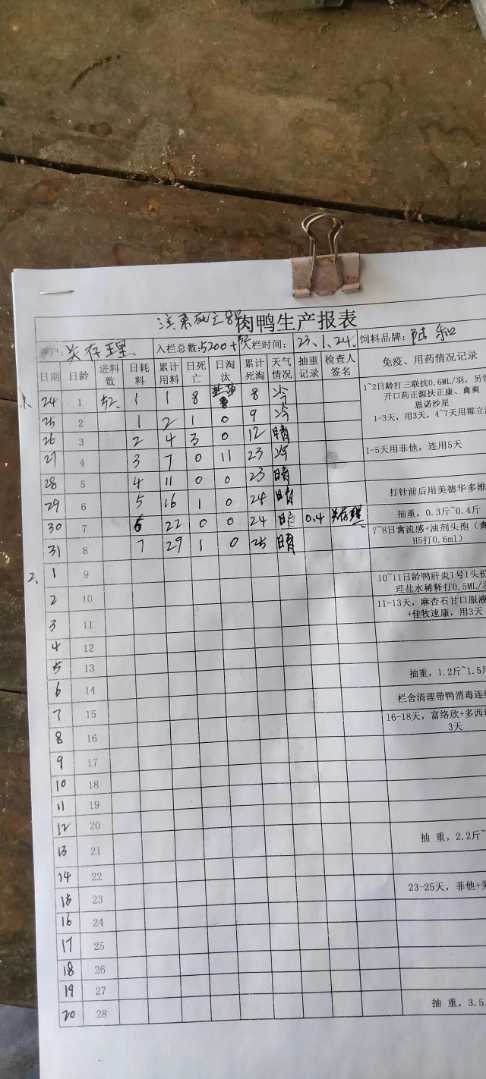 肉鸭生产报表
关存理 入栏总数:5200+ 入栏时间: 23.1.24. 饲料品牌:
日期 日龄 进料数 日耗料 累计用料 日死亡 日淘汰 累计死淘 天气情况 抽重记录 检查人签名 免疫、用药情况记录
1. 24 1 52 1 1 8 8 冷 1~2日龄打三联抗0.6ML/羽,另饮
开口药正源扶正康、禽爽
恩诺沙星
25 2 1 2 1 0 9 冷 1-3天,用3天,4~7天用霉立
26 3 2 4 3 0 12 晴
27 4 3 7 0 11 23 冷 1-5天用菲他,连用5天
28 5 4 11 0 0 23 晴
29 6 5 16 1 0 24 晴 打针前后用美德华多维
30 7 6 22 0 0 24 晴 0.4 关存理 抽重,0.3斤~0.4斤
31 8 7 29 1 0 25 晴 7~8日禽流感+油剂头孢(禽
H5打0.6ml)
2. 1 9
2 10 10~11日龄鸭肝炎1号1头份
理盐水稀释打0.5ML/
3 11 11-13天,麻杏石甘口服液
+佳牧速康,用3天
4 12
5 13
6 14 抽重,1.2斤~1.5斤
7 15 栏舍清理带鸭消毒连
8 16 16-18天,富络欣+多西
3天
9 17
10 18
11 19
12 20
13 21 抽 重,2.2斤~
14 22
15 23 23-25天,菲他+
16 24
17 25
18 26
19 27
20 28 抽 重,3.5